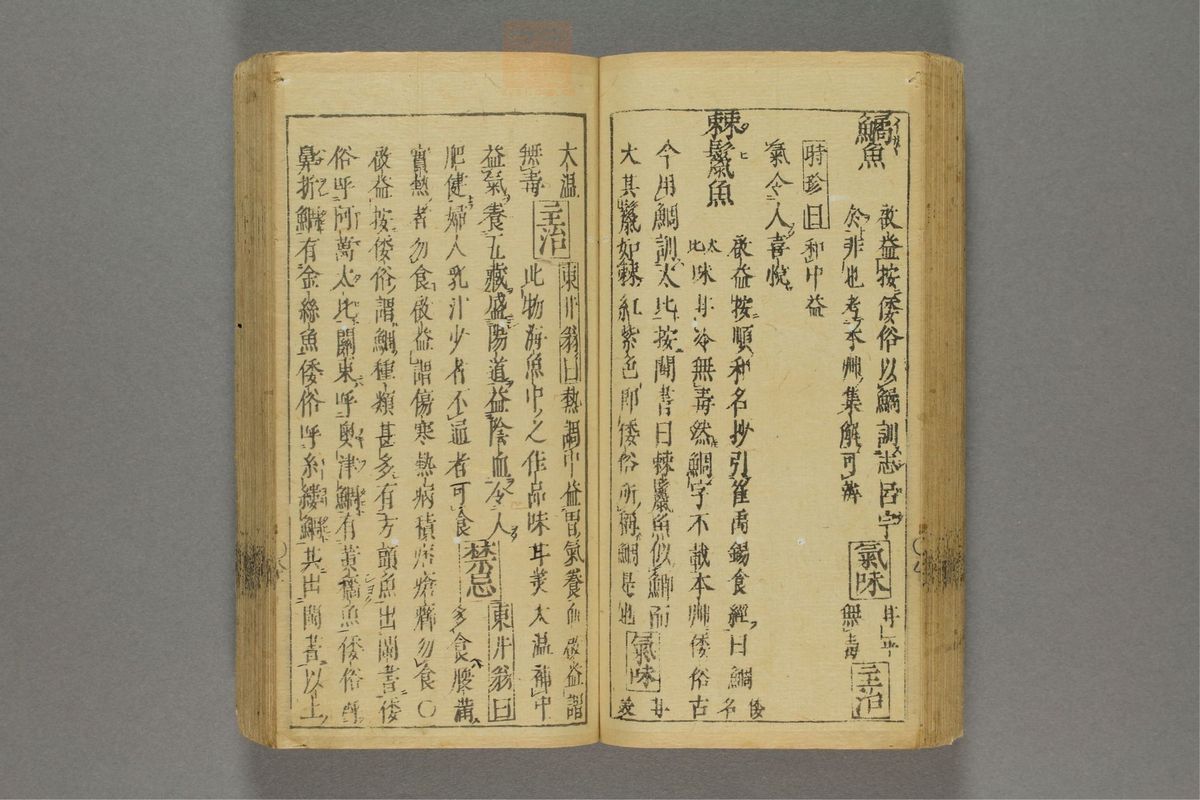 鱊魚
啟益按倭俗以鱊訓志呂宇
於非也考本艸集解可辨 氣味 甘平無毒 主治
時珍曰和中益
氣令人喜悅
棘鬣魚
啟益按順和名抄引崔禹錫食經曰鯛倭名
太比味甘冷無毒然鯛字不載本艸倭俗古
今用鯛訓太比按閩書曰棘鬣魚似鯽而
大其鬣如棘紅紫色即倭俗所稱鯛是也 氣味 甘
太温 東井翁曰熱調中益胃氣養血啟益謂
無毒 主治 此物海魚中之佳品味甘美太温補中
益氣養五臟盛陽道益陰血令人
肥健婦人乳汁少者不通者可食 禁忌 東井翁曰多食
實熱者勿食啟益謂傷寒熱病積痞勿食〇
啟益按倭俗謂鯛種類甚多有方頭魚出閩書倭
俗呼阿萬太比關東呼奧津鯛有黃穡魚倭俗呼
鼻折鯛有金絲魚倭俗呼糸縷鯛其出閩書以上